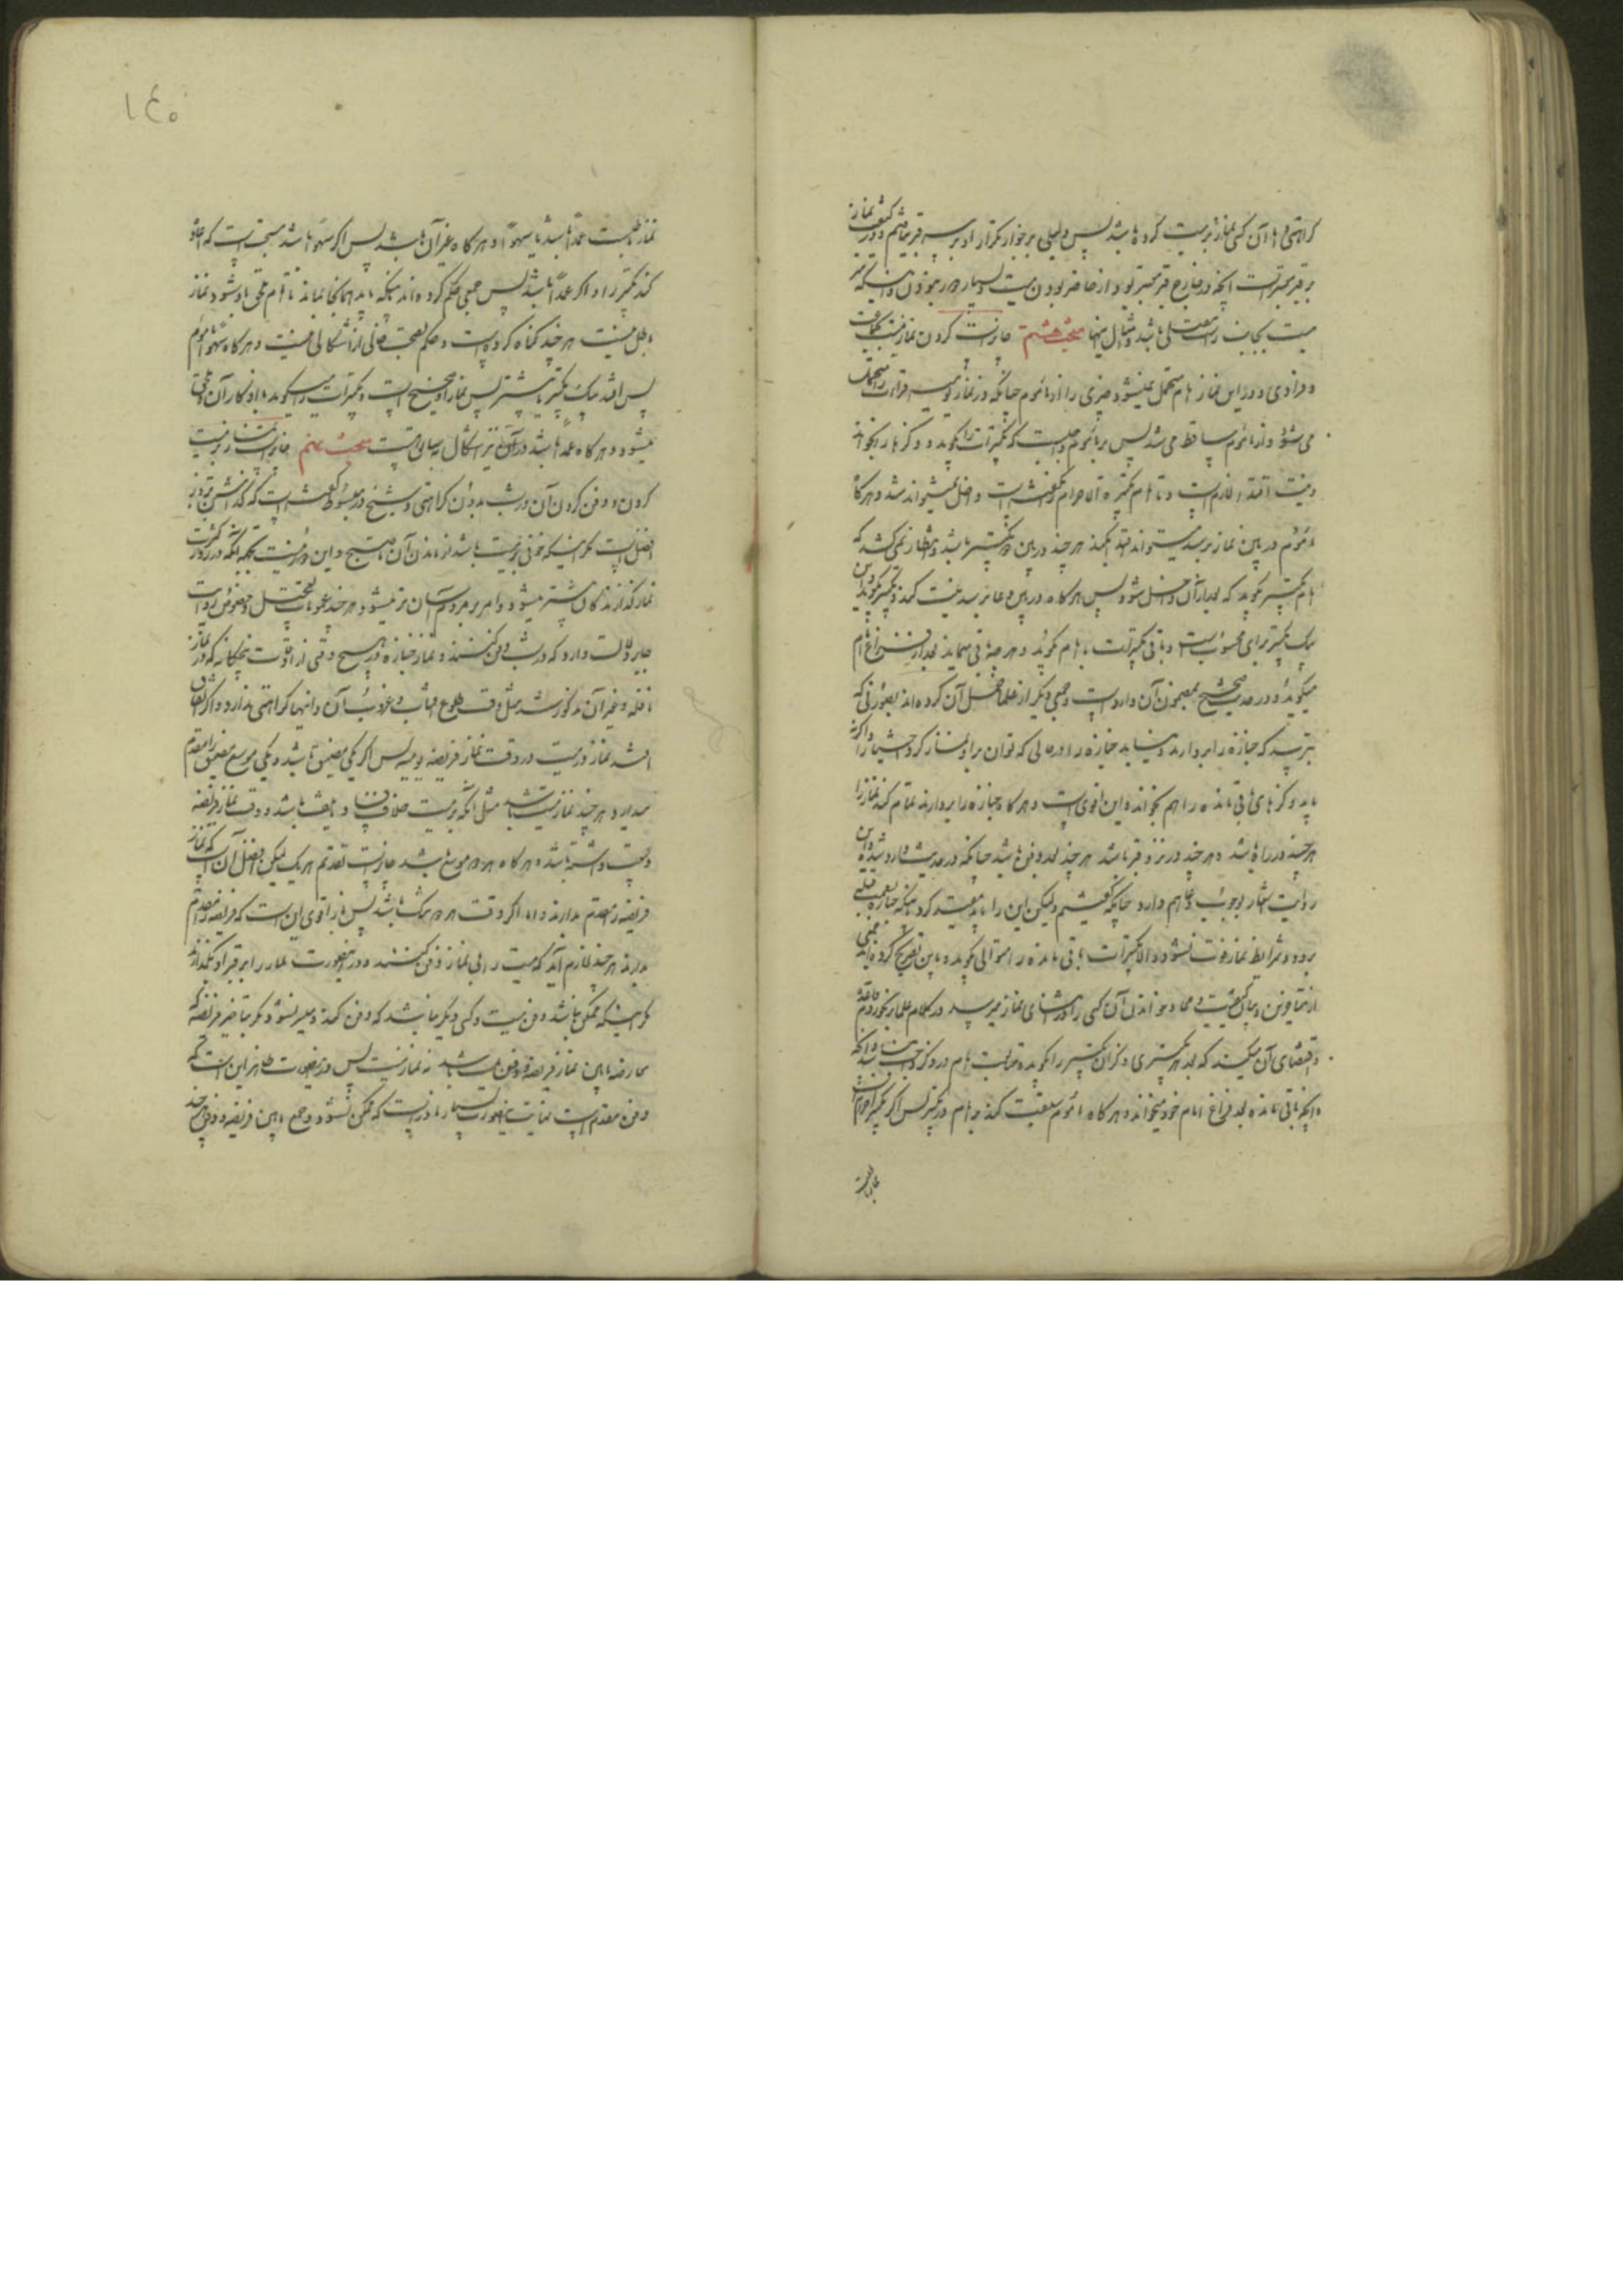 کراهتی و اما آن کسی نماز بر میت کرده باشد پس دلیلی بر جواز تکرار او بر سر قبر نیافتیم و در کیفیت نماز
بر قبر معتبر است آنچه در خارج قبر معتبر بود از حاضر بودن میت و بسیار دور نبودن و اینکه سر
میت بجانب راست مصلی باشد و امثال اینها مبحث هشتم جایز است کردن نماز میت بجماعت
و فرادی و در این نماز امام متحمل نمیشود چیزی را از مأموم چنانکه در نماز یومیه قرائت را متحمل
می شود و از مأموم ساقط می شد پس بر مأموم واجبست که تکبیرات را بگوید و ذکرها را بخواند
و نیت اقتدا لازم است و تا امام تکبیرة الاحرام نگفته است داخل نمیتواند شد و هرگاه
مأموم در بین نماز برسد میتواند اقتدا بکند هر چند در بین دو تکبیر باشد و انتظار نمی کشد که
امام تکبیر بگوید که بعد از آن داخل شود پس هرگاه در بین دعا برسد نیت کند و تکبیر بگوید و این
یک تکبیر برای او محسوبست و باقی تکبیرات با امام بگوید و هر چه باقی بماند بعد از فراغ امام
میگوید و در حدیث صحیح بمضمون آن وارد است و جمعی دیگر از علما نقل آن کرده اند بصورتی که
بترسد که جنازه را بردارند و نیابد جنازه را در حالی که توان بر او نماز کرد و احتیاط را
باید ذکرهای باقی مانده را هم بخواند و این اقوی است و هرگاه جنازه را بردارند تمام کند نماز را
هر چند در راه باشد و هر چند در نزد قبر باشد هر چند بعد دفن باشد چنانکه در حدیث وارد شده و این
روایت اشعار بوجوب دعا هم دارد چنانکه گفتیم ولیکن این را باید مقید کرد باینکه جنازه بسمت قبله
برود و شرایط نماز فوت نشود والا تکبیرات باقی مانده را متوالی بگوید و باین تصریح کرده اند جمعی
از متأخرین و بیان کیفیت دعا و خواندن آن کسی را که در اثنای نماز میرسد در کلام علما برنخوردم و قاعده
اقتضای آن میکند که بعد هر تکبیری ذکر آن تکبیر را بگوید و متابعت امام در ذکر واجب نباشد و آنکه
آنچه باقی مانده بعد فراغ امام خود میخواند و هرگاه مأموم سبقت کند بر امام در تکبیر پس اگر تکبیر احرام است
نماز باطلست عمداً باشد یا سهواً و هرگاه غیر آن باشد پس اگر سهواً باشد مستحبست که اعاده
کند تکبیر را و اگر عمداً باشد پس جمعی حکم کرده اند باینکه باید همانجا بماند تا امام ملحق باو شود و نماز
باطل نیست هر چند گناه کرده است و حکم بصحت خالی از اشکالی نیست و هرگاه سهواً مأموم
پس افتد بیک تکبیر یا بیشتر پس نماز او صحیح است و تکبیرات را میگوید با اذکار آن و ملحق
میشود و هرگاه عمداً باشد در آن نیز اشکال سابق است مبحث نهم جایز است نماز بر میت
کردن و دفن کردن آن در شب بدون کراهتی و شیخ در مبسوط گفته است که گذاشتن تا روز
افضل است مگر اینکه خوفی بر میت باشد از ماندن آن تا صبح و این دور نیست بجهة آنکه در روز کثرت
نمازگذارندگان بیشتر میشود و امر بر مردم آسان تر میشود هر چند عمومات تعجیل و خصوص روایت
جابر دلالت دارد که در شب دفن کنند و نماز جنازه در هیچ وقتی از اوقات پنجگانه که در نماز
نافله و غیر آن مذکور شد مثل وقت طلوع آفتاب و غروب آن و اینها کراهتی ندارد و اگر اتفاق
افتد نماز میت در وقت نماز فریضه یومیه پس اگر یکی مضیق باشد و یکی موسع مضیق را مقدم
میدارد هر چند نماز میت باشد مثل آنکه بر میت خوف فساد باشد و وقت نماز فریضه
وسعت داشته باشد و هرگاه هر دو موسع باشد جایز است تقدیم هر یک لیکن افضل آن است که نماز
فریضه را مقدم بدارند و اما اگر وقت هر دو تنگ باشد پس اقوی این است که فریضه را مقدم
بدارند هر چند لازم آید که میت را بی نماز دفن کنند و در اینصورت نماز را بر قبر او بگذارند
مگر اینکه ممکن نباشد دفن میت و کسی دیگر نباشد که دفن کند و میسر نشود مگر بتأخیر فریضه که
معارضه مابین نماز فریضه و دفن میت باشد نه نماز میت پس در اینصورت ظاهر این است که
دفن مقدم است نهایت اینصورت بسیار نادر است که ممکن نشود جمع مابین فریضه و دفن هر چند
نماز باطلست
۱۴۰